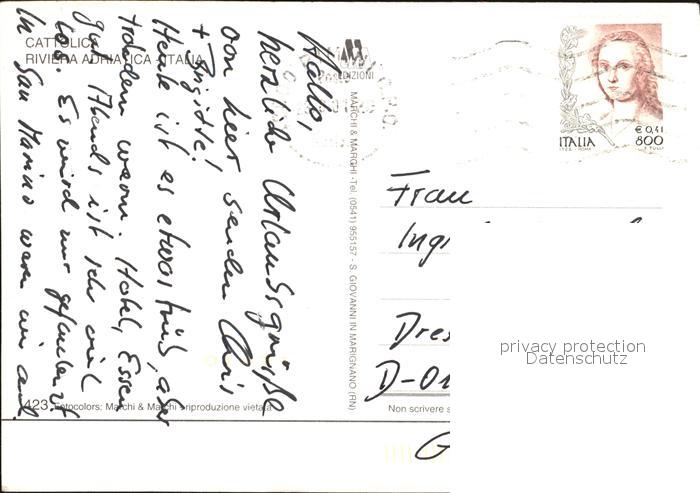 CATTOLICA
RIVIERA ADRIATICA - ITALIA
Hallo,
herzliche Urlaubsgrüße
von hier senden Chris
+ Brigitte!
Heute ist es etwas trüb, aber
trotzdem warm. Hotel, Essen
gut. Abends ist sehr viel
los. Es wird nur gefaulenzt
In San Marino waren wir auch.
423 Fotocolors: Marchi & Marchi - riproduzione vietata
EDIZIONI
MARCHI & MARCHI - Tel. (0541) 955157 - S. GIOVANNI IN MARIGNANO (RN)
€ 0,41
ITALIA 800
Frau
Ing
Dres
D-01
Non scrivere s
G
privacy protection
Datenschutz